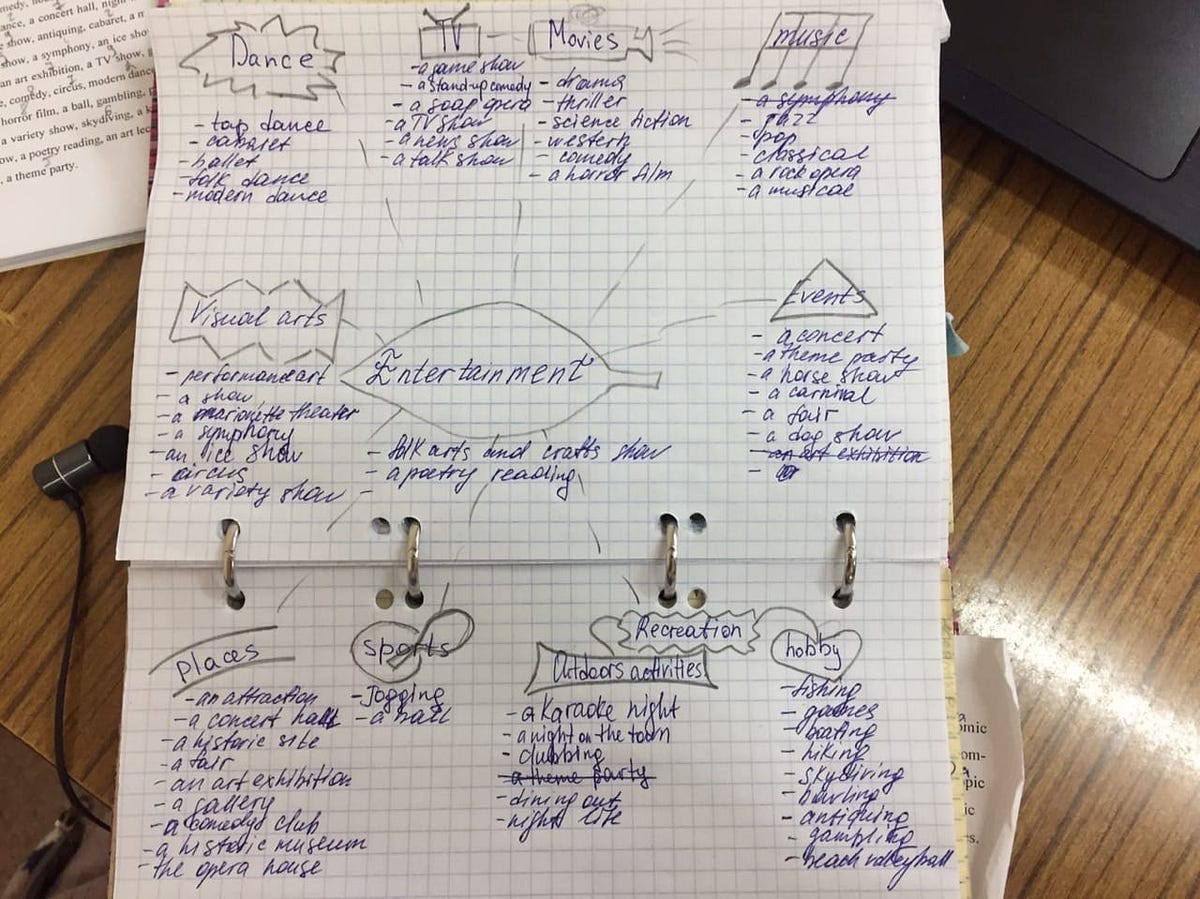 medy, ho
ance, a concert hall, night
e show, antiquing, cabaret, a m
show, a symphony, an ice sho
an art exhibition, a TV show,
e, comedy, circus, modern dance
horror film, a ball, gambling,
a variety show, skydiving, a k
ow, a poetry reading, an art lec
, a theme party.
Dance
- tap dance
- cabaret
- ballet
- folk dance
- modern dance
TV
- a game show
- a stand-up comedy
- a soap opera
- a TV show
- a news show
- a talk show
Movies
- drama
- thriller
- science fiction
- western
- comedy
- a horror film
music
- a symphony
- jazz
- pop
- classical
- a rock opera
- a musical
Visual arts
- performance art
- a show
- a marionette theater
- a symphony
- an ice show
- circus
- a variety show
Entertainment
- folk arts and crafts show
- a poetry reading
-
Events
- a concert
- a theme party
- a horse show
- a carnival
- a fair
- a dog show
- an art exhibition
-
places
- an attraction
- a concert hall
- a historic site
- a fair
- an art exhibition
- a gallery
- a comedy club
- a historic museum
- the opera house
sports
- Jogging
- a ball
Recreation
Outdoors activities
- a Karaoke night
- a night on the town
- clubbing
- a theme party
- dining out
- night life
hobby
- fishing
- games
- boating
- hiking
- skydiving
- bowling
- antiquing
- gambling
- beach valleyball
omic
om-
opic
ic
s.